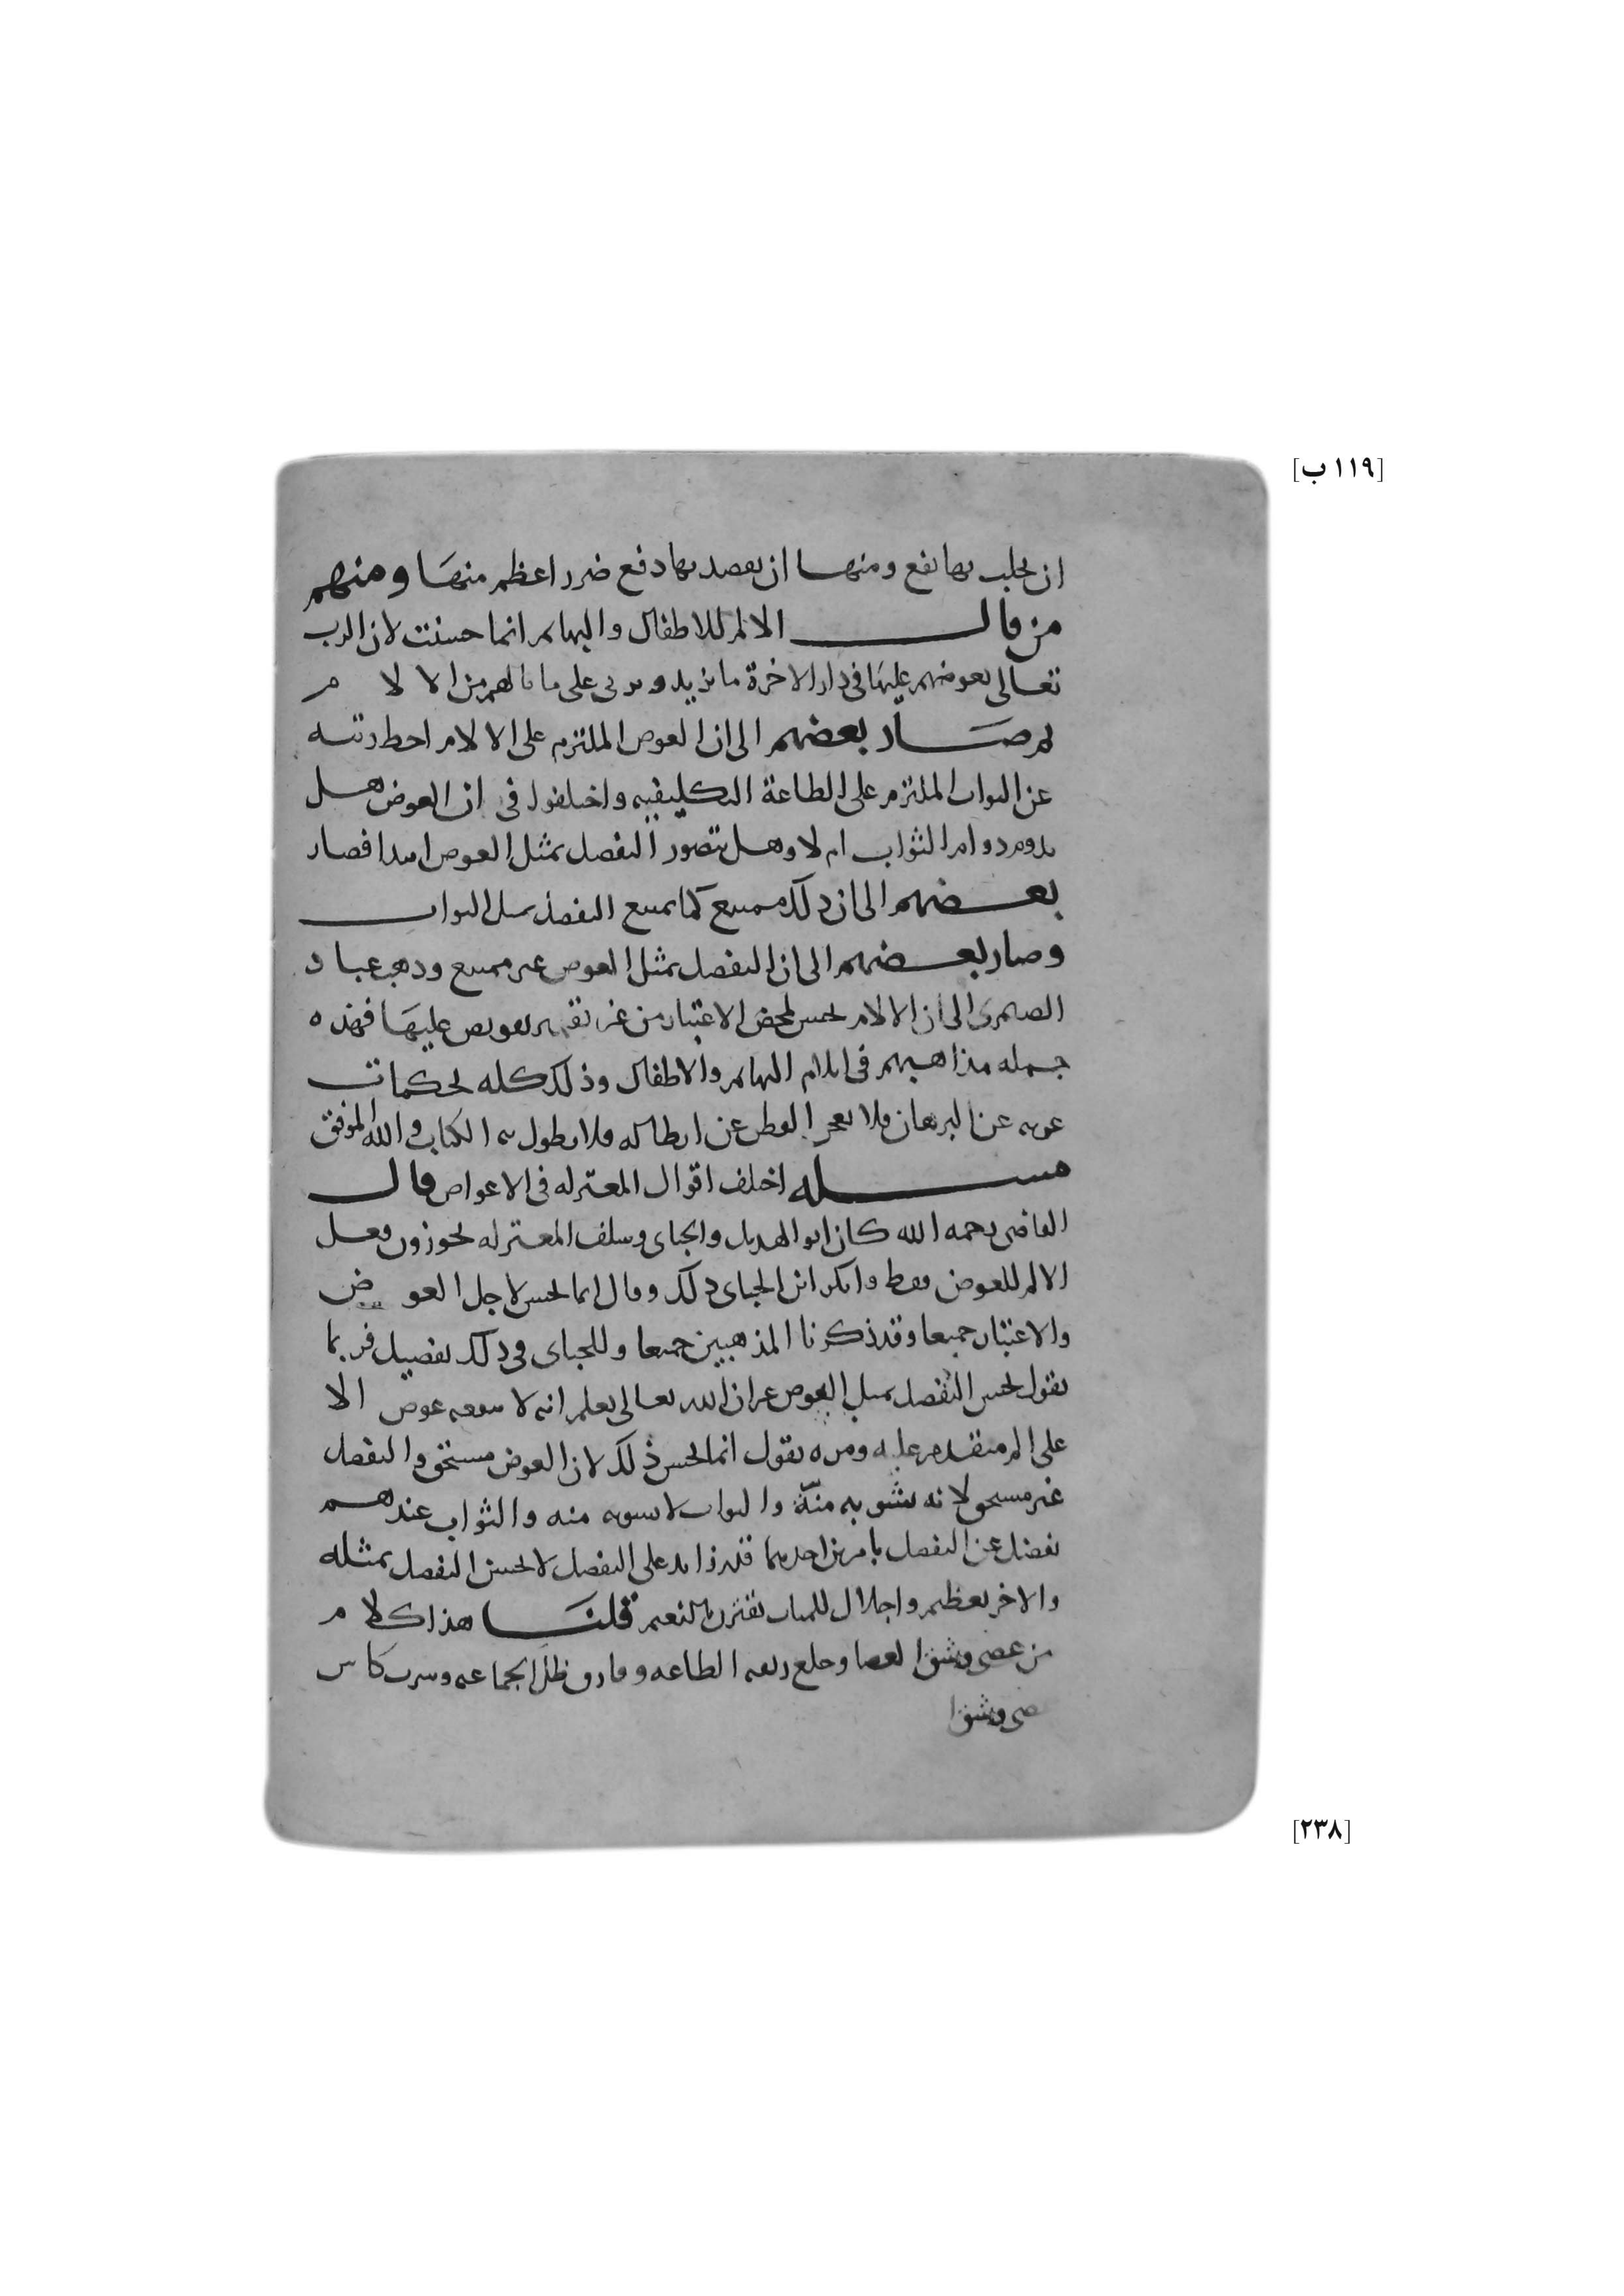 [١١٩ ب]
ان يجلب بها نفع ومنها ان يقصد بها دفع ضرر اعظم منها ومنهم
من قال الالم للاطفال والبهائم انما حسنت لان الرب
تعالى يعوضهم عليها في دار الاخرة ما يزيد ويربى على ما نالهم من الالام
ثم صار بعضهم الى ان العوض الملتزم على الالام احط رتبه
عن الثواب الملتزم على الطاعة التكليفيه واختلفوا في ان العوض هل
يدوم دوام الثواب ام لا وهل يتصور التفضل بمثل العوض ابتدا فصار
بعضهم الى ان ذلك ممتنع كما يمتنع التفضل بمثل الثواب
وصار بعضهم الى ان التفضل بمثل العوض غير ممتنع وذهب عباد
الصيمرى الى ان الالام تحسن لمحض الاعتبار من غير تقدير تعويض عليها فهذه
جمله مذاهبهم في ايلام البهائم والاطفال وذلك كله تحكمات
عريه عن البرهان ولا يعجز الفطن عن ابطاله فلا نطول به الكتاب والله الموفق
مسله اختلف اقوال المعتزله في الاعواض قال
القاضى رحمه الله كان ابو الهذيل والجباى وسلف المعتزله يجوزون فعل
الالم للعوض فقط وانكر ابن الجباى ذلك وقال انما يحسن لاجل العوض
والاعتبار جميعا وقد ذكرنا المذهبين جميعا وللجباى في ذلك تفصيل فربما
يقول يحسن التفضل بمثل العوض غير ان الله تعالى يعلم انه لا ينفعه عوض الا
على الم متقدم عليه ومره يقول انما يحسن ذلك لان العوض مستحق والتفضل
غير مستحق لانه يشوبه منّة والثواب لا يشوبه منه والثواب عندهم
يفضل عن التفضل بامرين احدهما قدر زايد على التفضل لا يحسن التفضل بمثله
والاخر تعظيم واجلال للمثاب يقترن بالنعيم قلنا هذا كلام
من عصى وشق العصا وخلع ربقه الطاعه وفارق ظل الجماعه وشرب كاس
[٢٣٨]